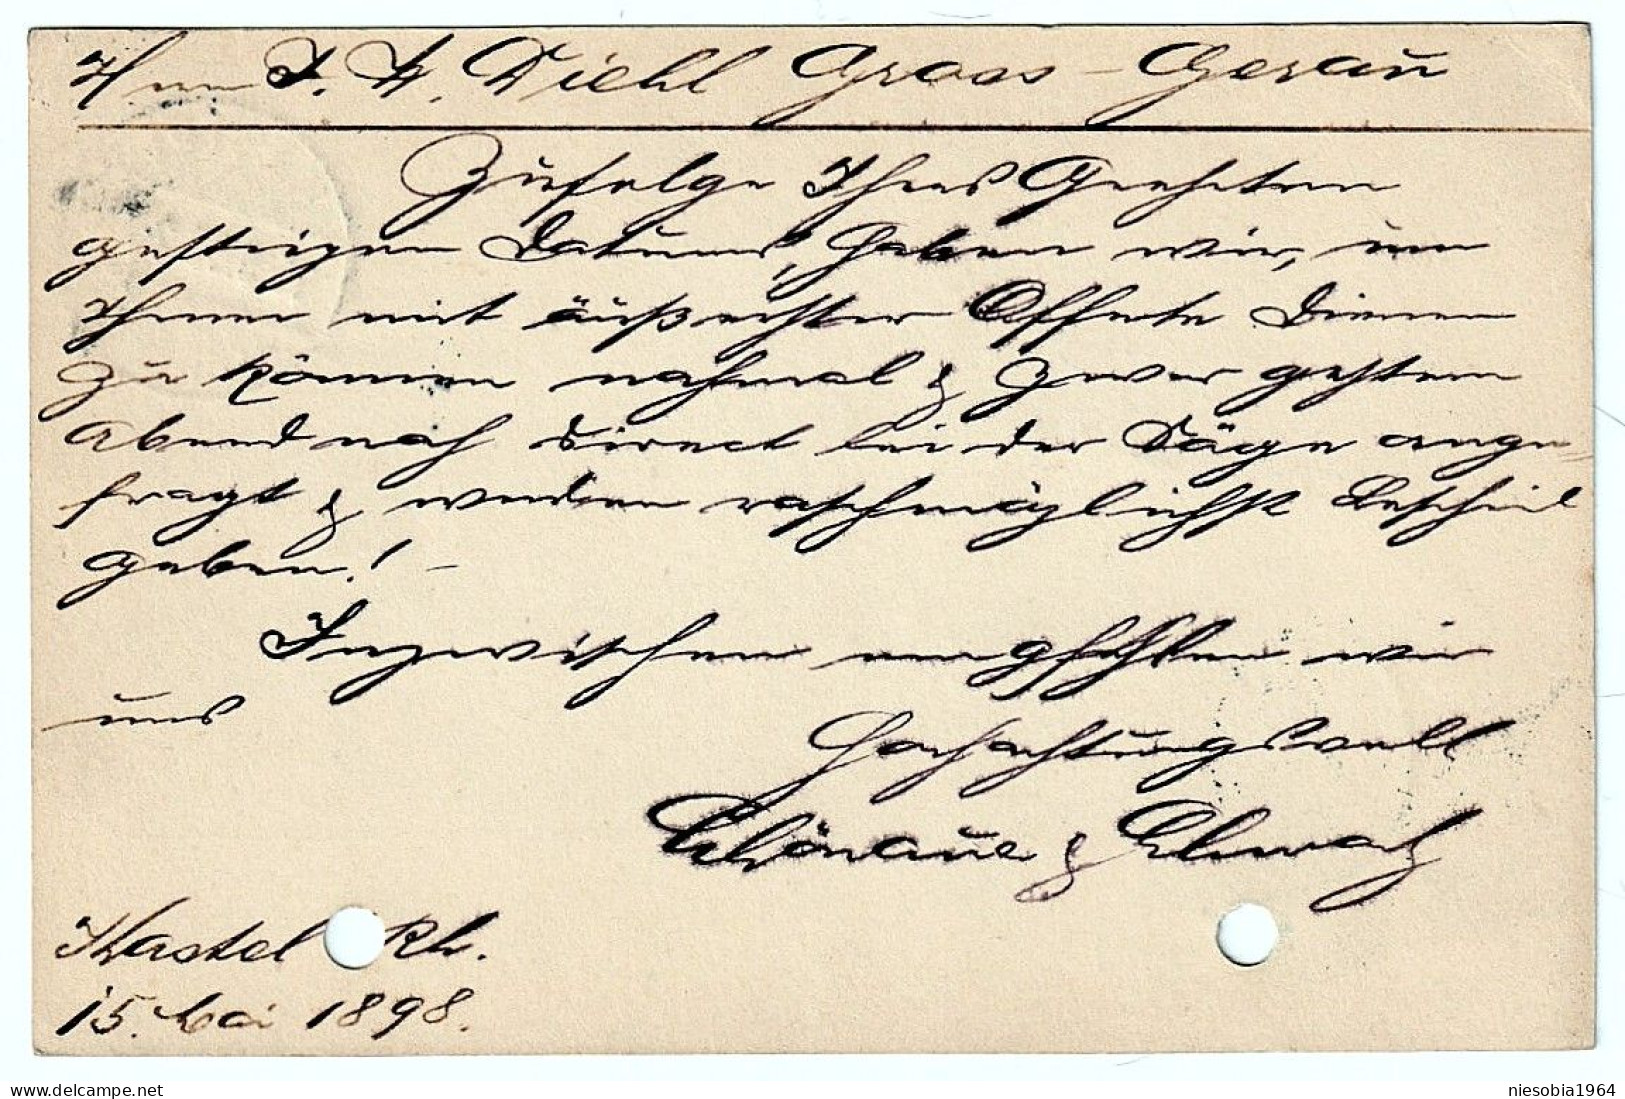 Herrn J. H. Diehl Gross-Gerau
Zufolge Ihres Geehrten
gestrigen Datums, haben wir, um
Ihnen mit äußerster Offerte dienen
zu können nochmal & zwar gestern
Abend noch direct bei der Säge ange=
fragt & werden raschmöglichst Bescheid
geben! –
Inzwischen empfehlen wir
uns
Hochachtungsvoll
Schönaue &
Kastel Rh.
15. Mai 1898.
niesobia1964